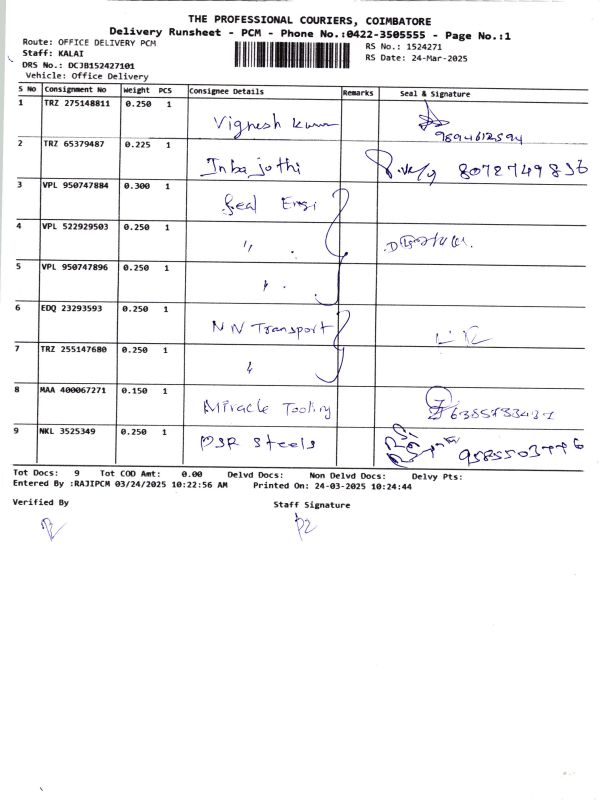 THE PROFESSIONAL COURIERS, COIMBATORE
Delivery Runsheet - PCM - Phone No.:0422-3505555 - Page No.:1
Route: OFFICE DELIVERY PCM RS No.: 1524271
Staff: KALAI RS Date: 24-Mar-2025
DRS No.: DCJB152427101
Vehicle: Office Delivery
S No Consignment No Weight PCS Consignee Details Remarks Seal & Signature
1 TRZ 275148811 0.250 1 Vignesh Kumar 9894612594
2 TRZ 65379487 0.225 1 Inba jothi 8072749836
3 VPL 950747884 0.300 1 Seal Engi
4 VPL 522929503 0.250 1 "
5 VPL 950747896 0.250 1 "
6 EDQ 23293593 0.250 1 N N Transport
7 TRZ 255147680 0.250 1 "
8 MAA 400067271 0.150 1 Miracle Tooling 6385733437
9 NKL 3525349 0.250 1 PSR Steels 9585503776
Tot Docs: 9 Tot COD Amt: 0.00 Delvd Docs: Non Delvd Docs: Delvy Pts:
Entered By :RAJIPCM 03/24/2025 10:22:56 AM Printed On: 24-03-2025 10:24:44
Verified By Staff Signature